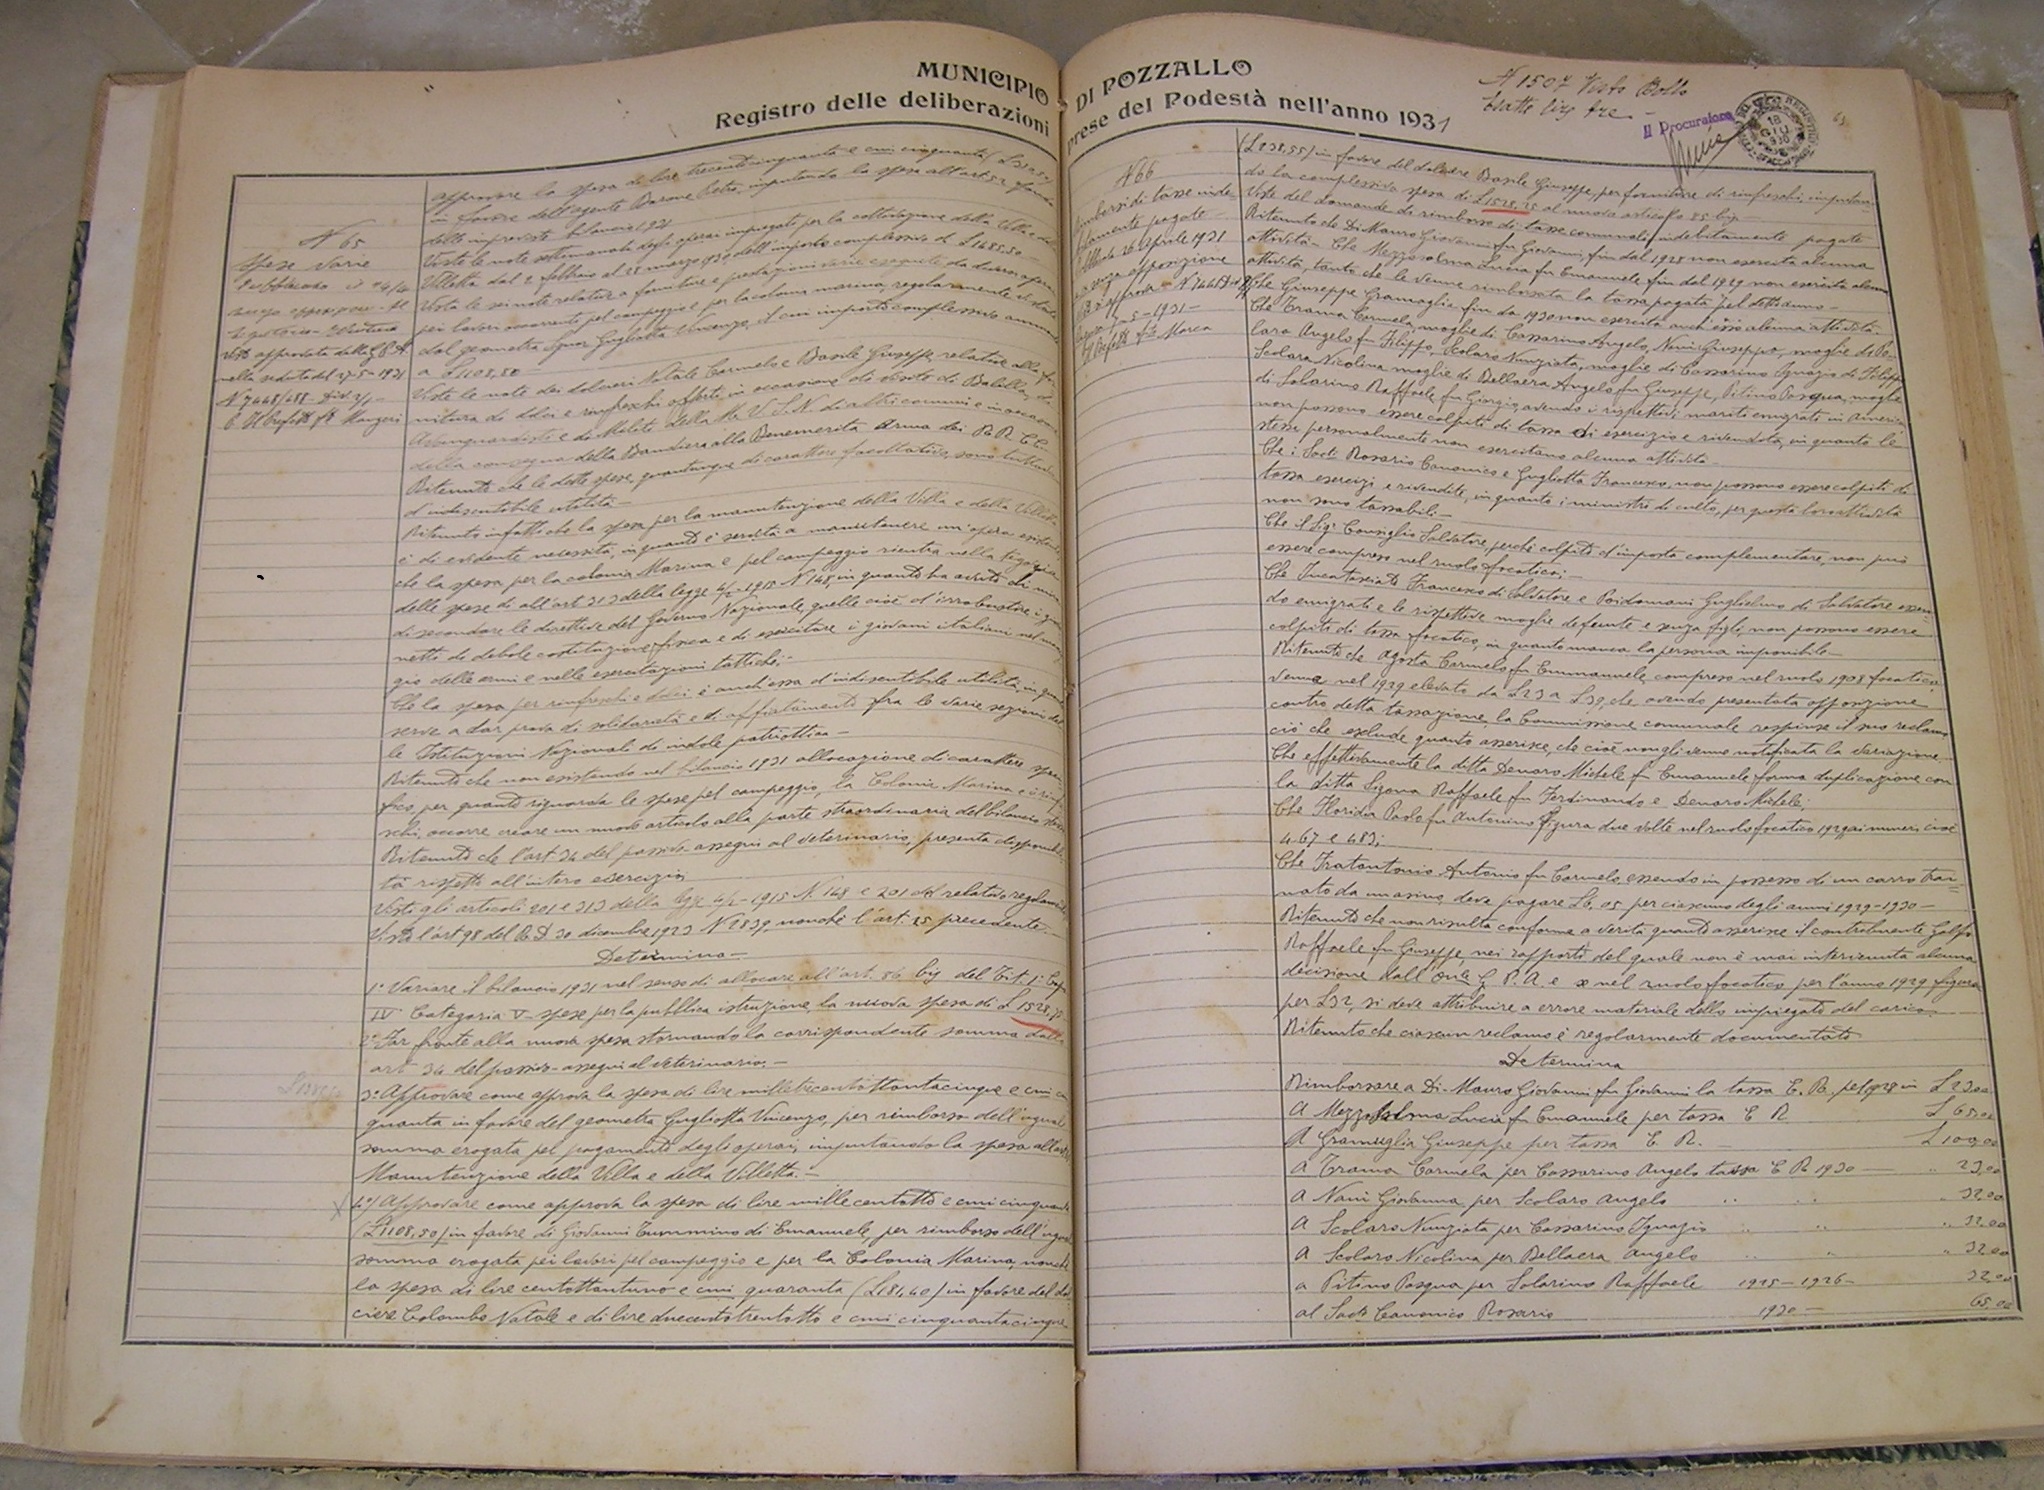 MUNICIPIO DI POZZALLO
Registro delle deliberazioni prese del Podestà nell'anno 1931
N 65
Spese varie
senza opposizioni
Visto approvato dalla G.P.A.
nella seduta del 27-5-1931
approvare la spesa di lire trecentocinquanta e cmi cinquanta
in favore dell'agente Barone Pietro, imputando la spesa all'art. 52
delle impreviste bilancio 1931
Viste le note settimanali degli operai impiegati per la coltivazione della Villa e della
Villetta dal 2 febbraio al 28 marzo dell'importo complessivo di L 1485,50
Viste le sei note relative a forniture e prestazioni varie eseguite da diversi operai
pei lavori occorrenti pel campeggio e per la colonia marina, regolarmente vistate
dal geometra Signor Gugliotta Vincenzo, il cui importo complessivo ammonta
a L 1108,50
Viste le note dei dolcieri Natale Carmelo e Basile Giuseppe relative alla for
nitura di dolci e rinfreschi offerti in occasione di visite di Balilla, di
Avanguardisti e di Militi della M. V. S. N. di altri comuni e in occasione
della consegna della Bandiera alla Benemerita Arma dei RR. CC.
Ritenuto che le dette spese, quantunque di carattere facoltativo, sono tuttavia
d'indiscutibile utilità—
Ritenuto infatti che la spesa per la manutenzione della Villa e della Villetta
è di evidente necessità, in quanto è servita a manutenere un'opera esistente
che la spesa per la colonia Marina e pel campeggio rientra nella categoria
delle spese di all'art 313 della legge 4/2-1915 N 148, in quanto ha avuto di mira
di secondare le direttive del Governo Nazionale, quelle cioè d'irrobustire i giovi
netti di debole costituzione fisica e di esercitare i giovani italiani nel maneg
gio delle armi e nelle esercitazioni tattiche;-
Che la spesa per rinfreschi e dolci è anch'essa d'indiscutibile utilità, in quanto
serve a dar prova di solidarietà e di affiatamento fra le varie sezioni del
le Istituzioni Nazionali di indole patriottica—
Ritenuto che non esistendo nel bilancio 1931 allocazione di carattere speci
fico, per quanto riguarda le spese pel campeggio, la Colonia Marina e i rinfre
schi, occorre creare un nuovo articolo alla parte straordinaria del bilancio stesso
Ritenuto che l'art 34 del passivo assegni al veterinario, presenta disponibili
tà rispetto all'intero esercizio;
Visti gli articoli 201 e 313 della legge 4/2-1915 N. 148 e 201 del relativo regolamento
Visto l'art 98 del R. D 30 dicembre 1923 N 2839, nonchè l'art. 25 precedente—
Determina—
1° Variare il bilancio 1931 nel senso di allocare all'art. 86 bis del Tit. 1° Capo
IV Categoria V- spese per la pubblica istruzione, la nuova spesa di L 1528,75
2° Far fronte alla nuova spesa stornando la corrispondente somma dallo
art 34 del passivo- assegni al veterinario.—
3° Approvare come approva la spesa di lire milletrecentottantacinque e cmi cin
quanta in favore del geometra Gugliotta Vincenzo, per rimborso dell'ugual
somma erogata pel pagamento degli operai, imputando la spesa all'art
Manutenzione della Villa e della Villetta.—
4°) Approvare come approva la spesa di lire millecentotto e cmi cinquanta
(L 1108,50) in favore di Giovanni Tummino di Emanuele, per rimborso dell'ugual
somma erogata pei lavori pel campeggio e per la Colonia Marina, nonchè
la spesa di lire centottantuno e cmi quaranta (L 181,40) in favore del dol
ciere Colombo Natale e di lire duecentotrentotto e cmi cinquantacinque
N 1507 Visto Bollo
Esatte lire tre
Il Procuratore
18 GIU 1930
N 66
Rimborsi di tasse inde-
bitamente pagate
senza opposizione
(L 238,55) in favore del dolciere Basile Giuseppe, per forniture di rinfreschi, imputan
do la complessiva spesa di L 1528,75 al nuovo articolo 85 bis
Viste del domande di rimborso di tasse comunali indebitamente pagate
Ritenuto che Di Mauro Giovanni fu Giovanni, fin dal 1928 non esercita alcuna
attività- Che Mezzasalma Lucia fu Emanuele fin dal 1929 non esercita alcuna
attività, tanto che le venne rimborsata la tassa pagata pel detto anno-
Che Giuseppe Gramaglia fin da 1930 non esercita anch'esso alcuna attività-
Che Trama Carmela, moglie di Cassarino Angelo, Nani Giuseppa, moglie di Sco-
laro Angelo fu Filippo, Scolaro Nunziata, moglie di Cassarino Ignazio di Filippo
Scolaro Nicolina moglie di Bellaera Angelo fu Giuseppe, Pitino Pasqua, moglie
di Solarino Raffaele fu Giorgio, avendo i rispettivi mariti emigrati in America
non possono essere colpiti di tassa di esercizio e rivendita, in quanto le
stesse personalmente non esercitano alcuna attività-
Che i Sacti Rosario Canonico e Gugliotta Francesco, non possono essere colpiti di
tassa esercizi e rivendite, in quanto i ministri di culto, per questa loro attività
non sono tassabili—
Che il Sigr Consiglio Salvatore, perchè colpito d'imposta complementare, non può
essere compreso nel ruolo focatico;—
Che Iucatasciato Francesco di Salvatore e Poidomani Guglielmo di Salvatore essen
do emigrati e le rispettive moglie defunte e senza figli, non possono essere
colpiti di tassa focatico, in quanto manca la persona imponibile—
Ritenuto che Agosta Carmelo fu Emmanuele, compreso nel ruolo 1928 focatico,
venne nel 1929 elevato da L 23 a L 39, che avendo presentata opposizione
contro detta tassazione, la Commissione comunale respinse il suo reclamo
ciò che esclude quanto asserisce, che cioè non gli venne notificata la variazione—
Che effettivamente la ditta Denaro Michele fu Emanuele forma duplicazione con
la ditta Sigona Raffaele fu Ferdinando e Denaro Michele;
Che Floridia Paolo fu Antonino figura due volte nel ruolo focatico 1929 ai numeri cioè
467 e 483;
Che Fratantonio Antonio fu Carmelo, essendo in possesso di un carro trai-
nato da un asino, deve pagare L 6, 05 per ciascuno degli anni 1929-1930—
Ritenuto che non risulta conforme a verità quanto asserisce il contribuente Galfo
Raffaele fu Giuseppe, nei rapporti del quale non è mai intervenuta alcuna
decisione dall'On.le G. P. A. e se nel ruolo focatico per l'anno 1929 figura
per L 32, si deve attribuire a errore materiale dello impiegato del carico—
Ritenuto che ciascun reclamo è regolarmente documentato
Determina
Rimborsare a Di Mauro Giovanni fu Giovanni la tassa E. R. pel 1928 in L 23,00
A Mezzasalma Lucia fu Emanuele per tassa E R L 65,00
A Gramuglia Giuseppe per tassa E. R. L 100,00
A Trama Carmela per Cassarino Angelo tassa E R 1930 — „ 23,00
A Nani Giovanna per Scolaro Angelo „ „ „ 32,00
A Scolaro Nunziata per Cassarino Ignazio „ „ „ 32,00
A Scolaro Nicolina per Bellaera Angelo „ „ „ 32,00
a Pitino Pasqua per Solarino Raffaele 1925-1926- 32,00
al Sacte Canonico Rosario 1930 — 65,00